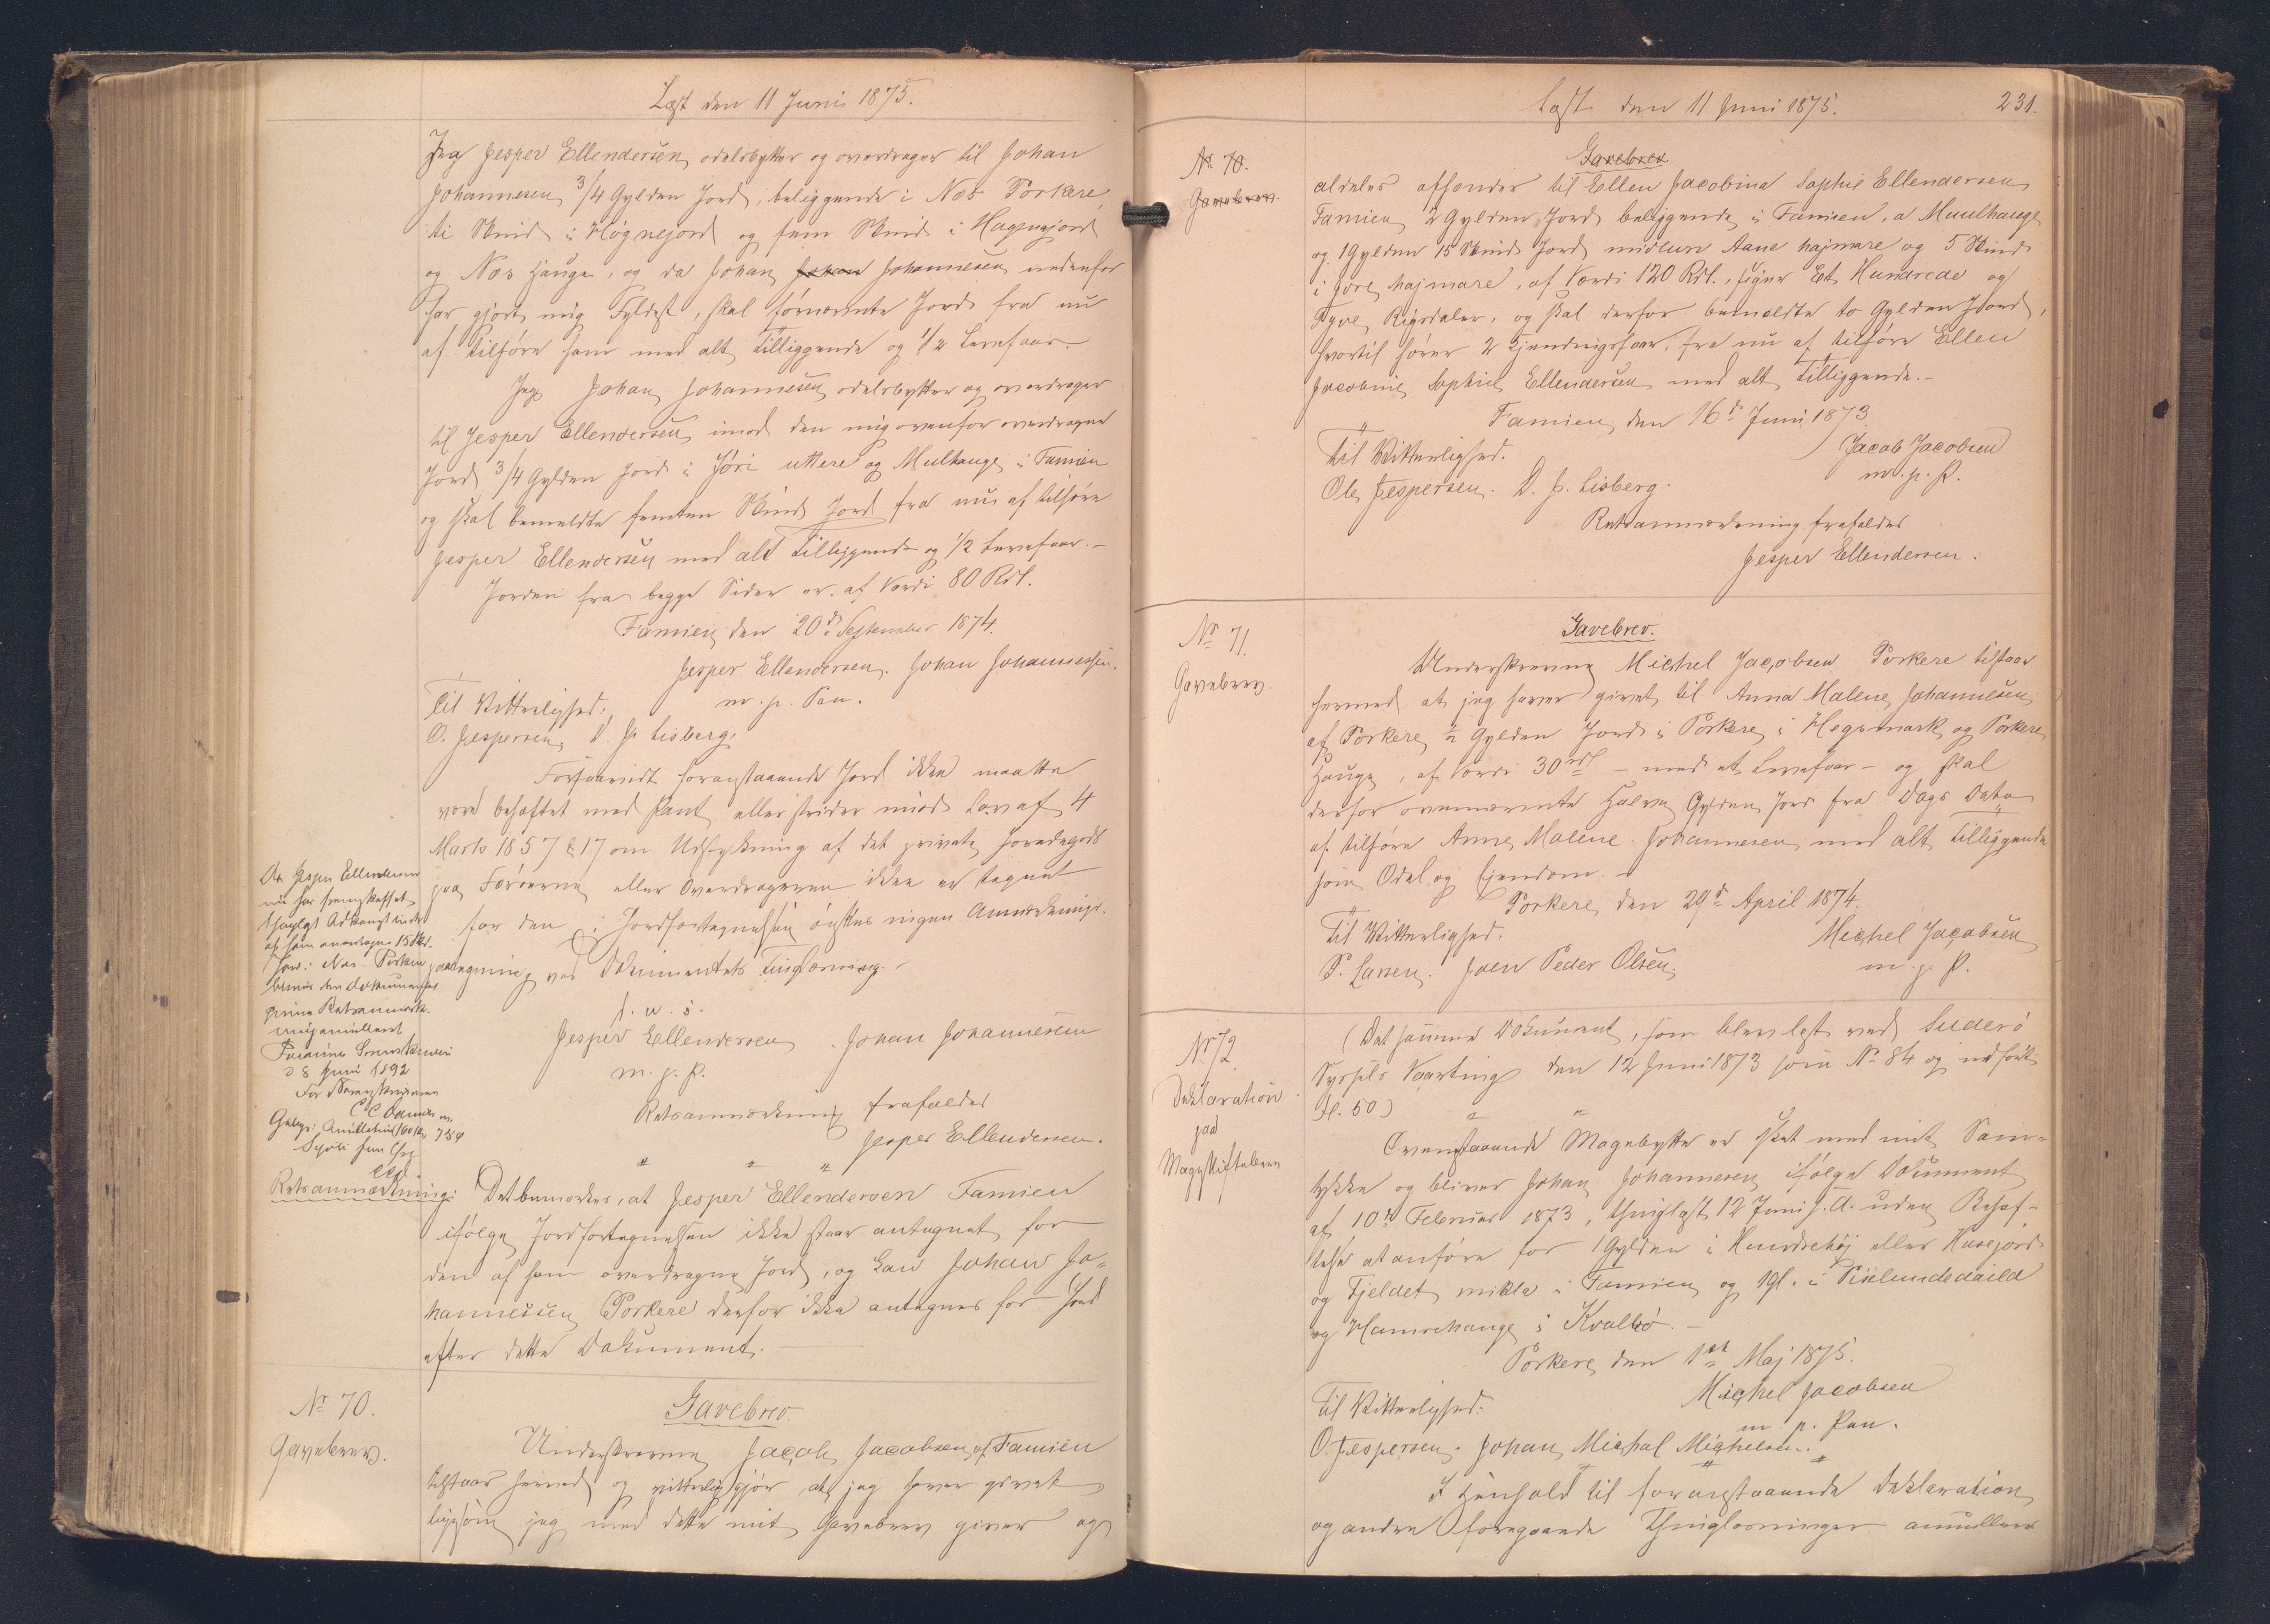 Læst den 11 Juni 1875.
Jeg Jesper Ellendersen, odelsbytter og overdrager til Johan
Johannesen 3/4 Gylden Jord, beliggende i Nos Porkere,
ti Skind i Høgnejord og fem Skind i Hagengjord
og Nos Hauge, og da Johan Johan Johannesen nedenfor
har gjort mig Fyldest, skal fornævnte Jord fra nu
af tilhøre ham med alt Tilliggende og 1/2 Løvefaar.
Jeg Johan Johannesen odelsbytter og overdrager
til Jesper Ellendersen, imod den mig ovenfor overdragne
Jord 3/4 Gylden Jord i Jöri uttere og Mulhauge i Famien
og skal bemeldte femten Skind Jord fra nu af tilhøre
Jesper Ellendersen med alt Tilliggende og 1/2 Løvefaar.-
Jorden fra begge Sider er af Værdi 80 Rdl.
Famien, den 20de September 1874.
Jesper Ellendersen. Johan Johannessen.
m. p. Pen.
Til Vitterlighed:
O. Jespersen, D. J. Lisberg.
Forsaavidt foranstaaende Jord ikke maatte
være behæftet med Pant eller strider mod Lov af 4
Marts 1857 § 17 om Udstykning af det private Jordegods
paa Færøerne eller Overdrageren ikke er tegnet
for den i Jordfortegnelsen ønskes ingen Anmærknings-
paategning ved Dokumentets Tinglæsning.
d. u. s.
Jesper Ellendersen. Johan Johannesen
m. p. P.
Retsanmærkning frafaldes
Jesper Ellendersen.
Da Jesper Ellendersen
nu har fremskaffet
thinglyst Adkomst til den
af ham overdragne 15 Skd.
Jord i Nos Porkere
bliver den Dokumentet
givne Retsanmærk-
ning annulleret
Færøernes Sorenskriveri
d 8 Juni 1892
For Sorenskriveren
Retsanmærkning: Det bemærkes, at Jesper Ellendersen Famien
ifølge Jordfortegnelsen ikke staar antegnet for
den af ham overdragne Jord, og kan Johan Jo-
hannessen Porkere derfor ikke antegnes for Jord
efter dette Dokument.
No 70.
Gavebrev.
Gavebrev
Underskrevne Jacob Jacobsen af Famien
tilstaar herved og vitterliggjør at jeg haver givet
ligesom jeg med dette mit Gavebrev giver og
Læst den 11 Juni 1875.
231.
No 70.
Gavebrev.
Gavebrev
aldeles afhænder til Ellen Jacobina Sophie Ellendersen
Famien, 2 Gylden Jord beliggende i Famien, a Muulhauge
og 1 Gylden 15 Skind Jord midlum Aane hajmare og 5 Skind
i Jøre hajmare, af Værdi 120 Rdl., siger Et Hundrede og
Tyve Rigsdaler, og skal derfor bemeldte to Gylden Jord,
hvortil hører 2 Ejendingsfaar, fra nu af tilhøre Ellen
Jacobine Sophie Ellendersen med alt Tilliggende.-
Famien, den 16de Juni 1873
Jacob Jacobsen
m. p. P.
Til Vitterlighed.
Ole Jespersen. D. J. Lisberg.
Retsanmærkning frafaldes
Jesper Ellendersen.
No 71.
Gavebrev.
Gavebrev.
Underskrevne Michel Jacobsen Porkere tilstaar
hermed, at jeg haver givet til Anna Malene Johannesen
af Porkere, 1/2 Gylden Jord i Porkere, i Hegsmark og Porkere
Hauge, af Værdi 30 rdl - med et Løvefaar - og skal
derfor ovennævnte halve Gylden Jord fra Dags Dato
af tilhøre Anne Malene Johannesen med alt Tilliggende
som Odel og Ejendom.-
Porkere, den 29de April 1874.
Til Vitterlighed:
Michel Jacobsen
m. p. P.
P. Larsen. Joen Peder Olsen.
No 72
Deklaration
paa
Mageskiftebrev
(Det samme Dokument, som blev læst ved Suderö
Syssels Vaarting den 12 Juni 1873 som No 84 og indført
Fl. 50)
Ovenstaaende Magebytte er sket med mit Sam-
tykke og bliver Johan Johannesen ifølge Dokument
af 10de Februar 1873, thinglæst 12 Juni s. A. uden Behæf-
telse at anføre for 1 Gylden i Hundrehöj eller Husejord
og Fjeldet mikla i Famien og 1gl. i
og Hamrehauge i Kvalbö.-
Porkere, den 1ste Maj 1875.
Michel Jacobsen
m. p. Pen.
Til Vitterlighed:
O. Jespersen. Johan Michal Michelsen.
I Henhold til foranstaaende Deklaration
og andre foregaaende Thinglæsninger annulleres